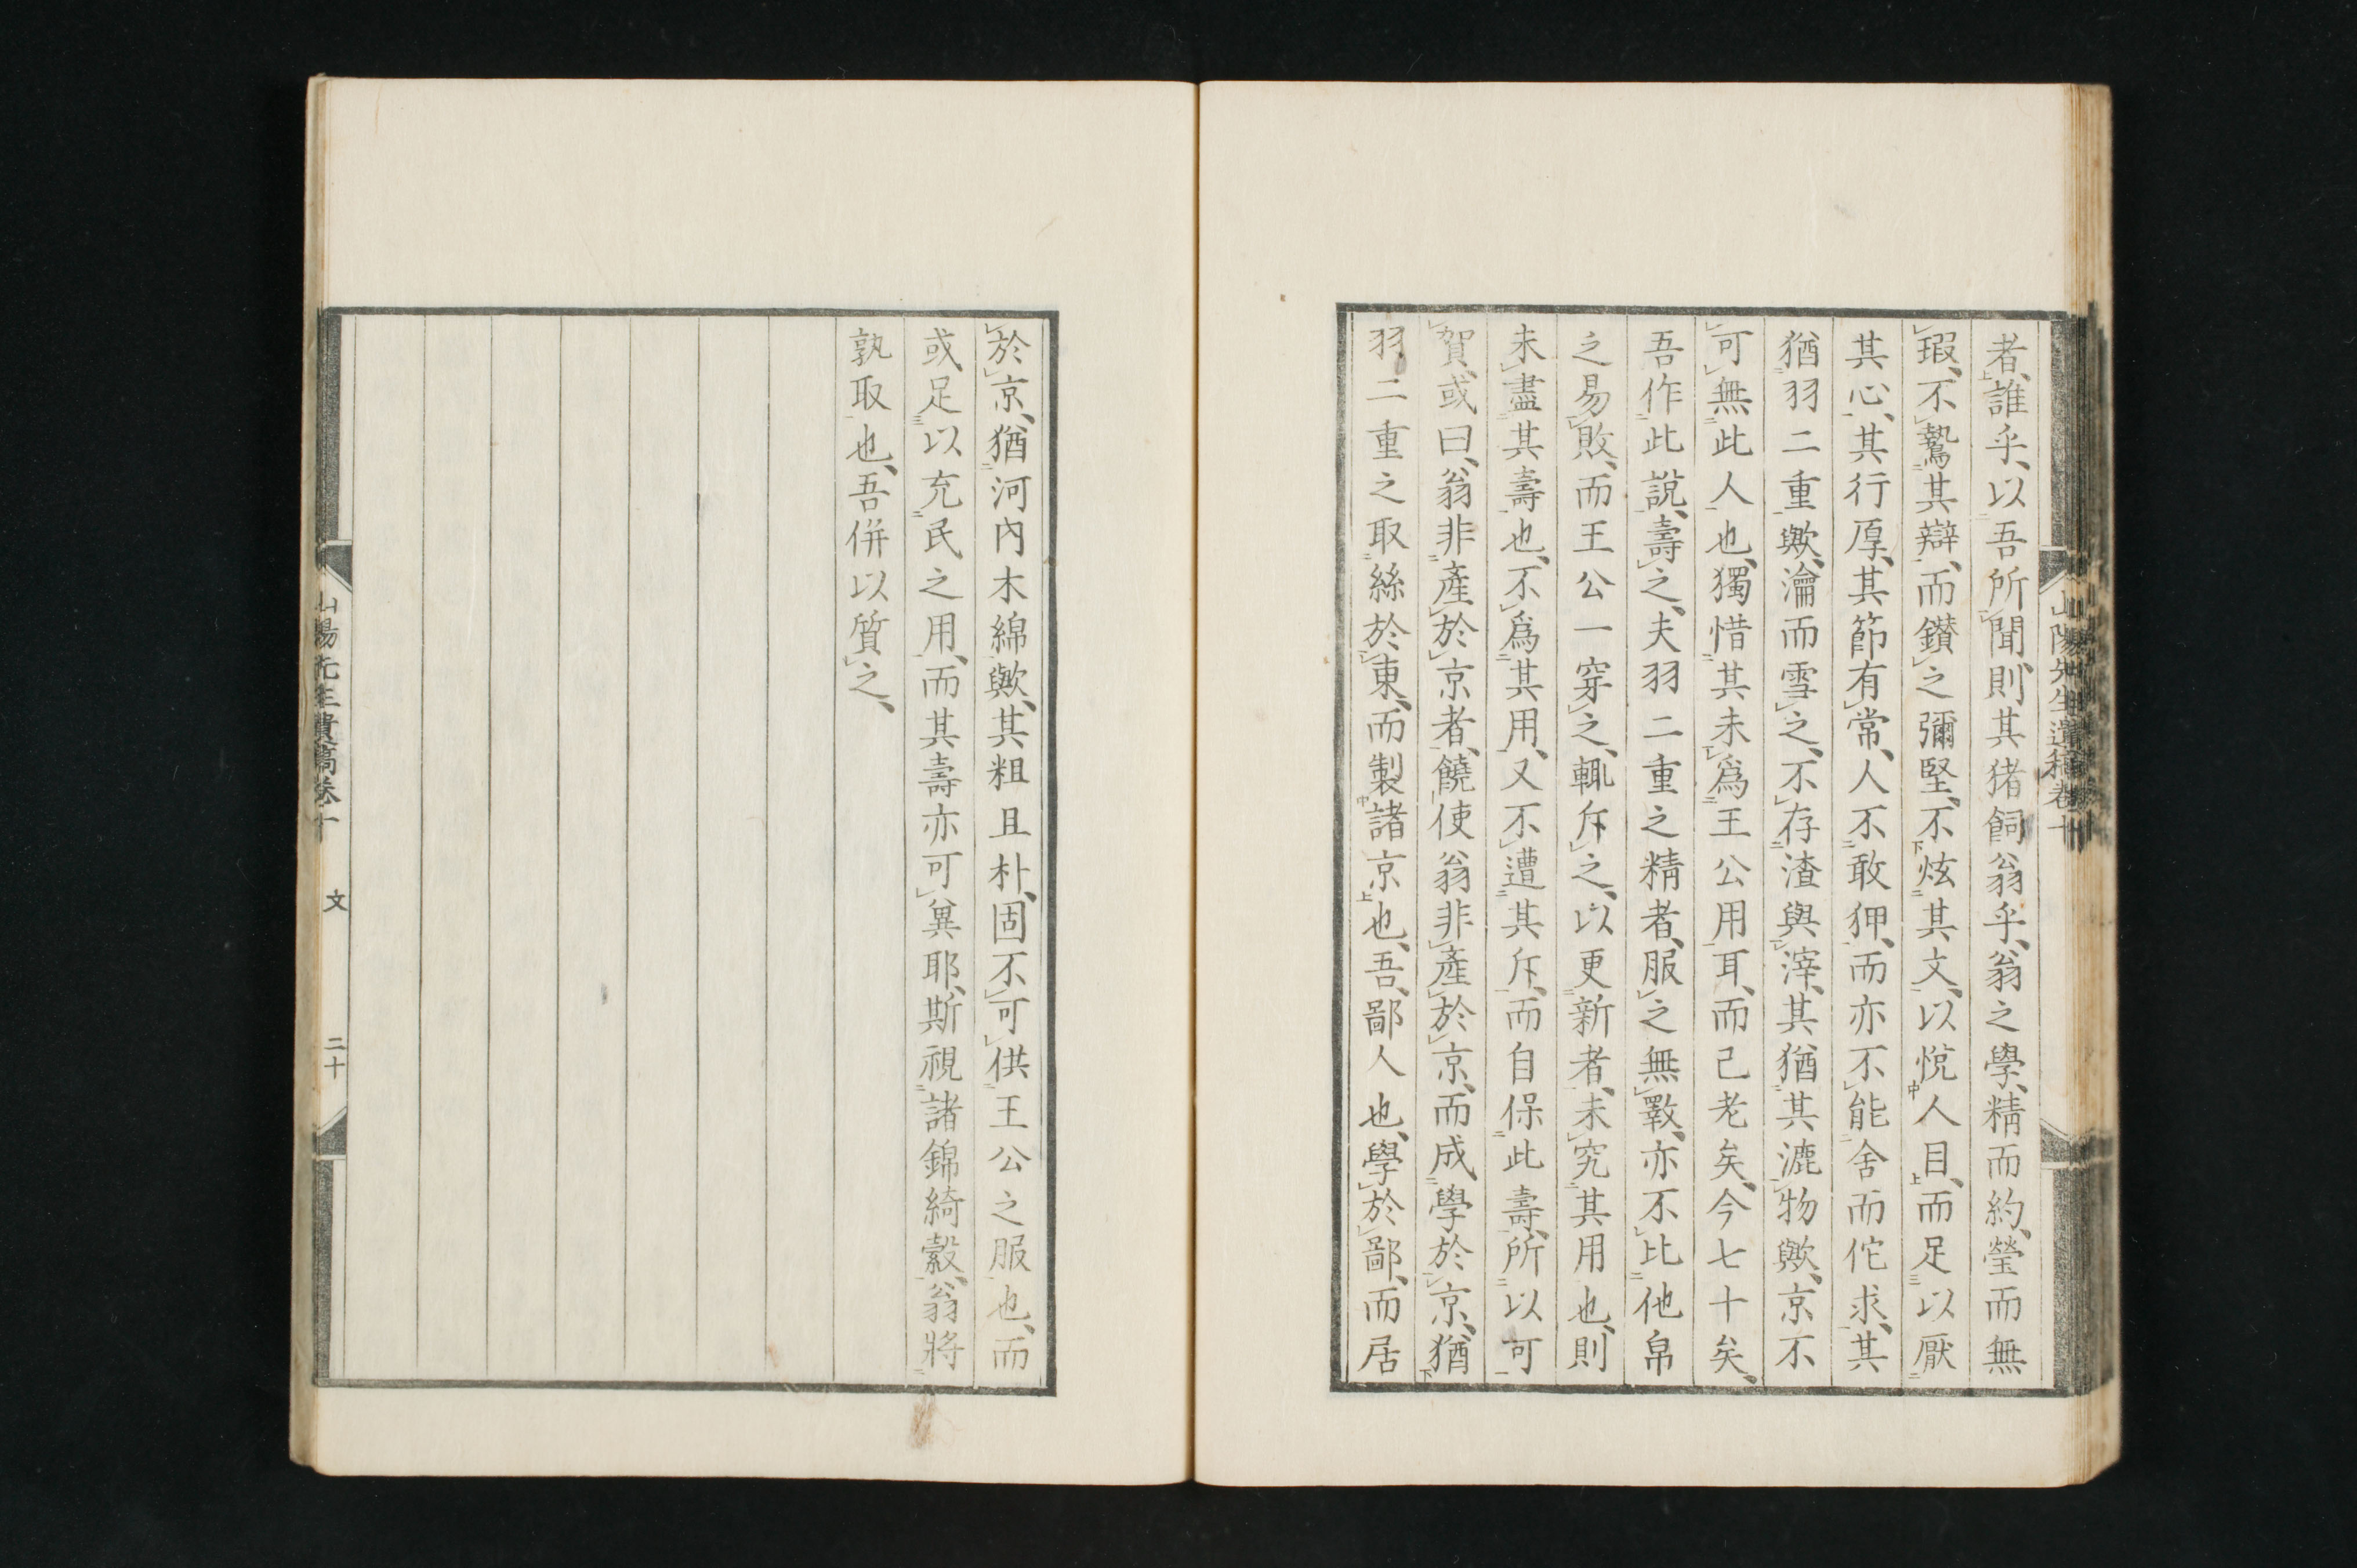 者、誰乎、以吾所聞、則其猪飼翁乎、翁之學、精而約、瑩而無
瑕、不鷙其辯、而鑚之彌堅、不炫其文、以悅人目、而足以厭
其心、其行厚、其節有常、人不敢狎、而亦不能舍而佗求、其
猶羽二重歟、瀹而雪之、不存渣與滓、其猶其漉物歟、京不
可無此人也、獨惜其未爲王公用耳、而已老矣、今七十矣、
吾作此說、壽之、夫羽二重之精者、服之無斁、亦不比他帛
之易敗、而王公一穿之、輒斥之、以更新者、未究其用也、則
未盡其壽也、不爲其用、又不遭其斥、而自保此壽、所以可
賀、或曰、翁非產於京者、饒使翁非產於京、而成學於京、猶
羽二重之取絲於東、而製諸京也、吾鄙人也、學於鄙、而居
於京、猶河內木綿歟、其粗且朴、固不可供王公之服也、而
或足以充民之用、而其壽亦可冀耶、斯視諸錦綺縠、翁將
孰取也、吾併以質之、
山陽先生遺稿卷十
文
二十
山陽先生遺稿卷十